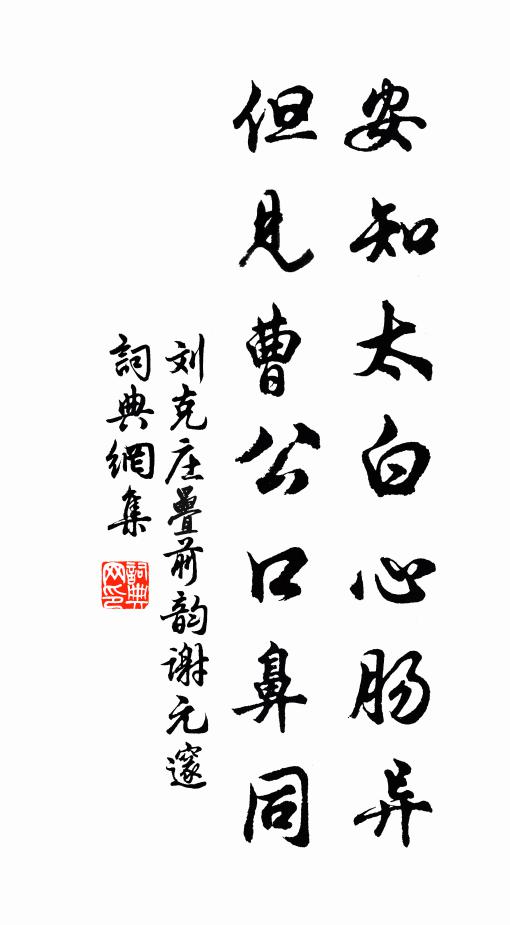 安知太白心肠异
但见曹公口鼻同
刘克庄叠前韵谢元邃
詞典網集
詞典网印